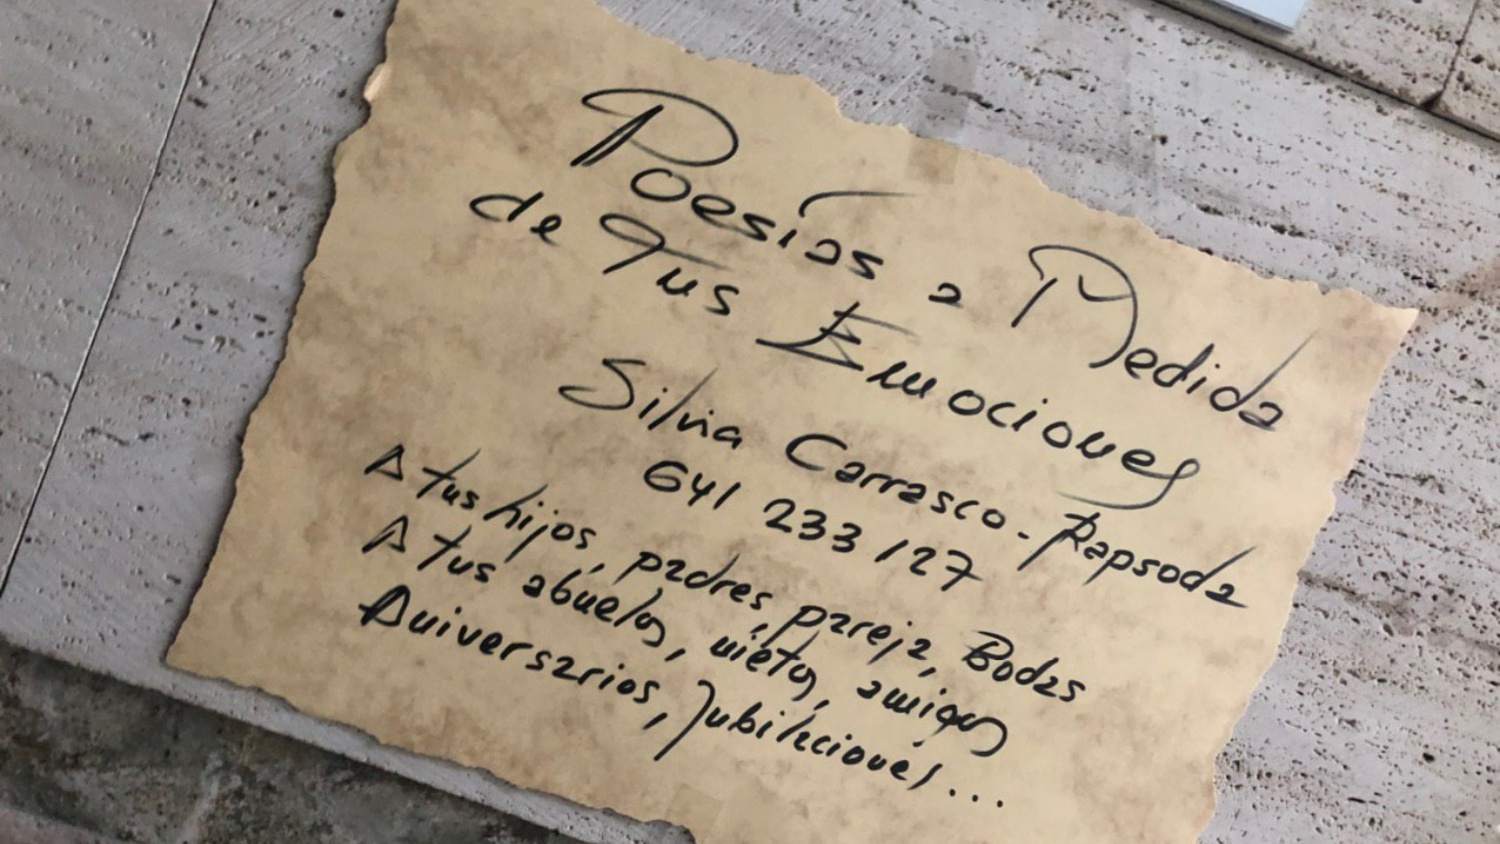 Poesías a Medida
de Tus Emociones
Silvia Carrasco - Rapsoda
641 233 127
A tus hijos, padres, pareja, Bodas
A tus abuelos, nietos, amigos
Aniversarios, Jubilaciones...